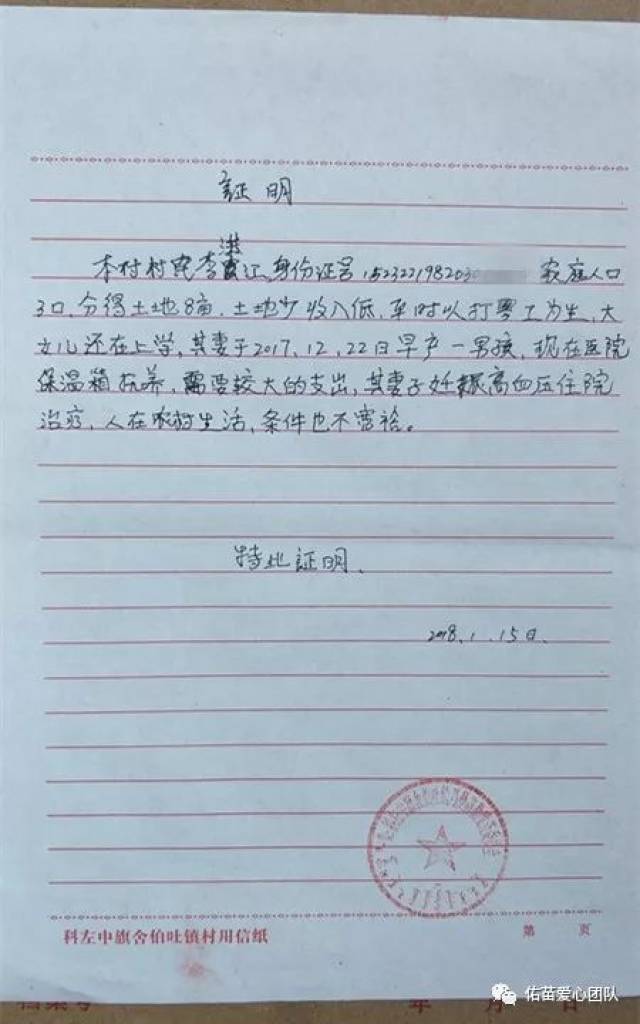 証明
洪
本村村民李江,身份证号152322198203 家庭人口
3口,分得土地8亩,土地少收入低,平时以打零工为生,大
女儿还在上学,其妻于2017.12.22日早产一男孩,现在医院
保温箱抚养,需要较大的支出,其妻子妊娠高血压住院
治疗,人在农村生活,条件也不宽裕。
特此証明、
2018.1.15日.
科左中旗舍伯吐镇村用信纸
第 页
佑苗爱心团队
年 月 日